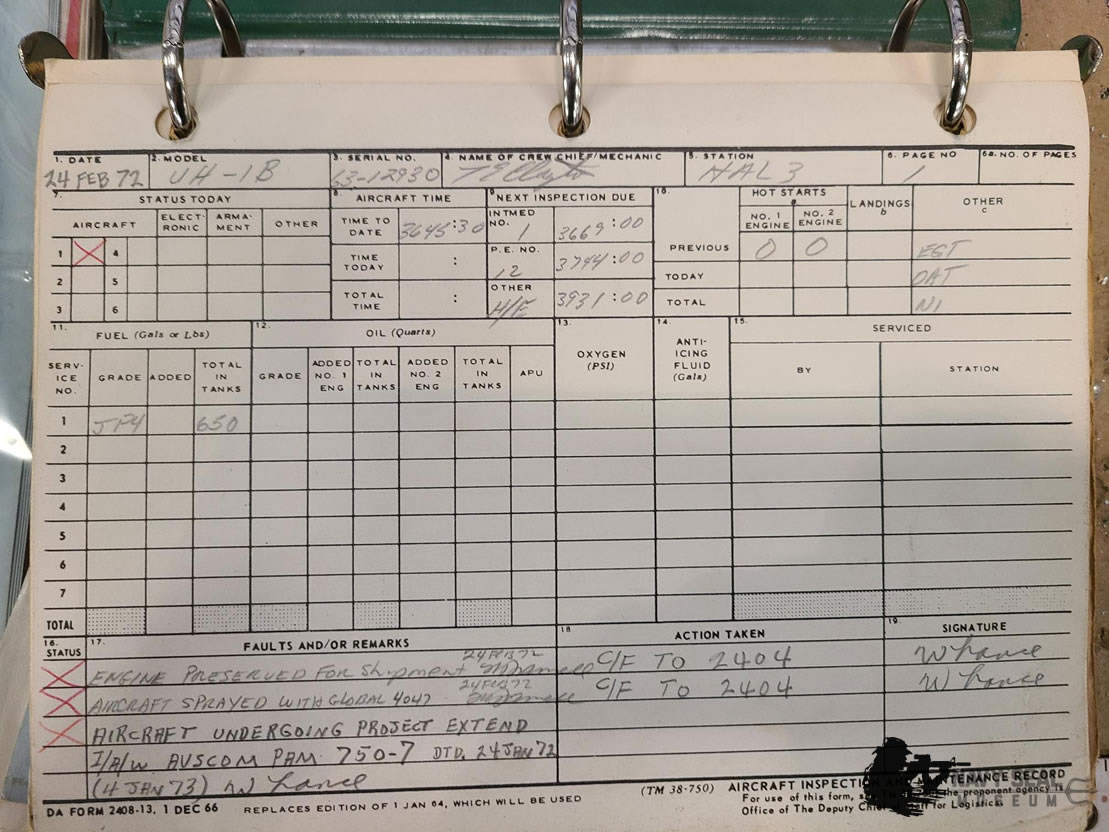 1. DATE 2. MODEL 3. SERIAL NO. 4. NAME OF CREW CHIEF/MECHANIC 5. STATION 6. PAGE NO 6a. NO. OF PAGES
24 FEB 72 UH-1B 63-12930 HAL 3 1
7. STATUS TODAY 8. AIRCRAFT TIME 9. NEXT INSPECTION DUE 10. HOT STARTS a LANDINGS b OTHER c
AIRCRAFT ELECTRONIC ARMAMENT OTHER
NO. 1 ENGINE NO. 2 ENGINE
TIME TO DATE 3645:30 INTMED NO. 1 3669:00
1 4 PREVIOUS 0 0 EGT
TIME TODAY : P.E. NO. 12 3794:00
2 5 TODAY OAT
TOTAL TIME : OTHER H/E 3931:00
3 6 TOTAL N1
11. FUEL (Gals or Lbs) 12. OIL (Quarts) 13. OXYGEN (PSI) 14. ANTI-ICING FLUID (Gals) 15. SERVICED
SERVICE NO. GRADE ADDED TOTAL IN TANKS GRADE ADDED NO. 1 ENG TOTAL IN TANKS ADDED NO. 2 ENG TOTAL IN TANKS APU BY STATION
1 JP4 650
2
3
4
5
6
7
TOTAL
16. STATUS 17. FAULTS AND/OR REMARKS 18 ACTION TAKEN 19. SIGNATURE
24 FEB 72
ENGINE PRESERVED FOR Shipment C/F TO 2404
24 FEB 72
AIRCRAFT SPRAYED WITH GLOBAL 4047 C/F TO 2404
AIRCRAFT UNDERGOING PROJECT EXTEND
I/A/W AVSCOM PAM. 750-7 DTD. 24 JAN 72
(4 JAN 73)
DA FORM 2408-13, 1 DEC 66 REPLACES EDITION OF 1 JAN 64, WHICH WILL BE USED
(TM 38-750) AIRCRAFT INSPECTION AND MAINTENANCE RECORD
For use of this form, the proponent agency is
Office of The Deputy Chief of Staff for Logistics.
NAVY SEAL
MUSEUM